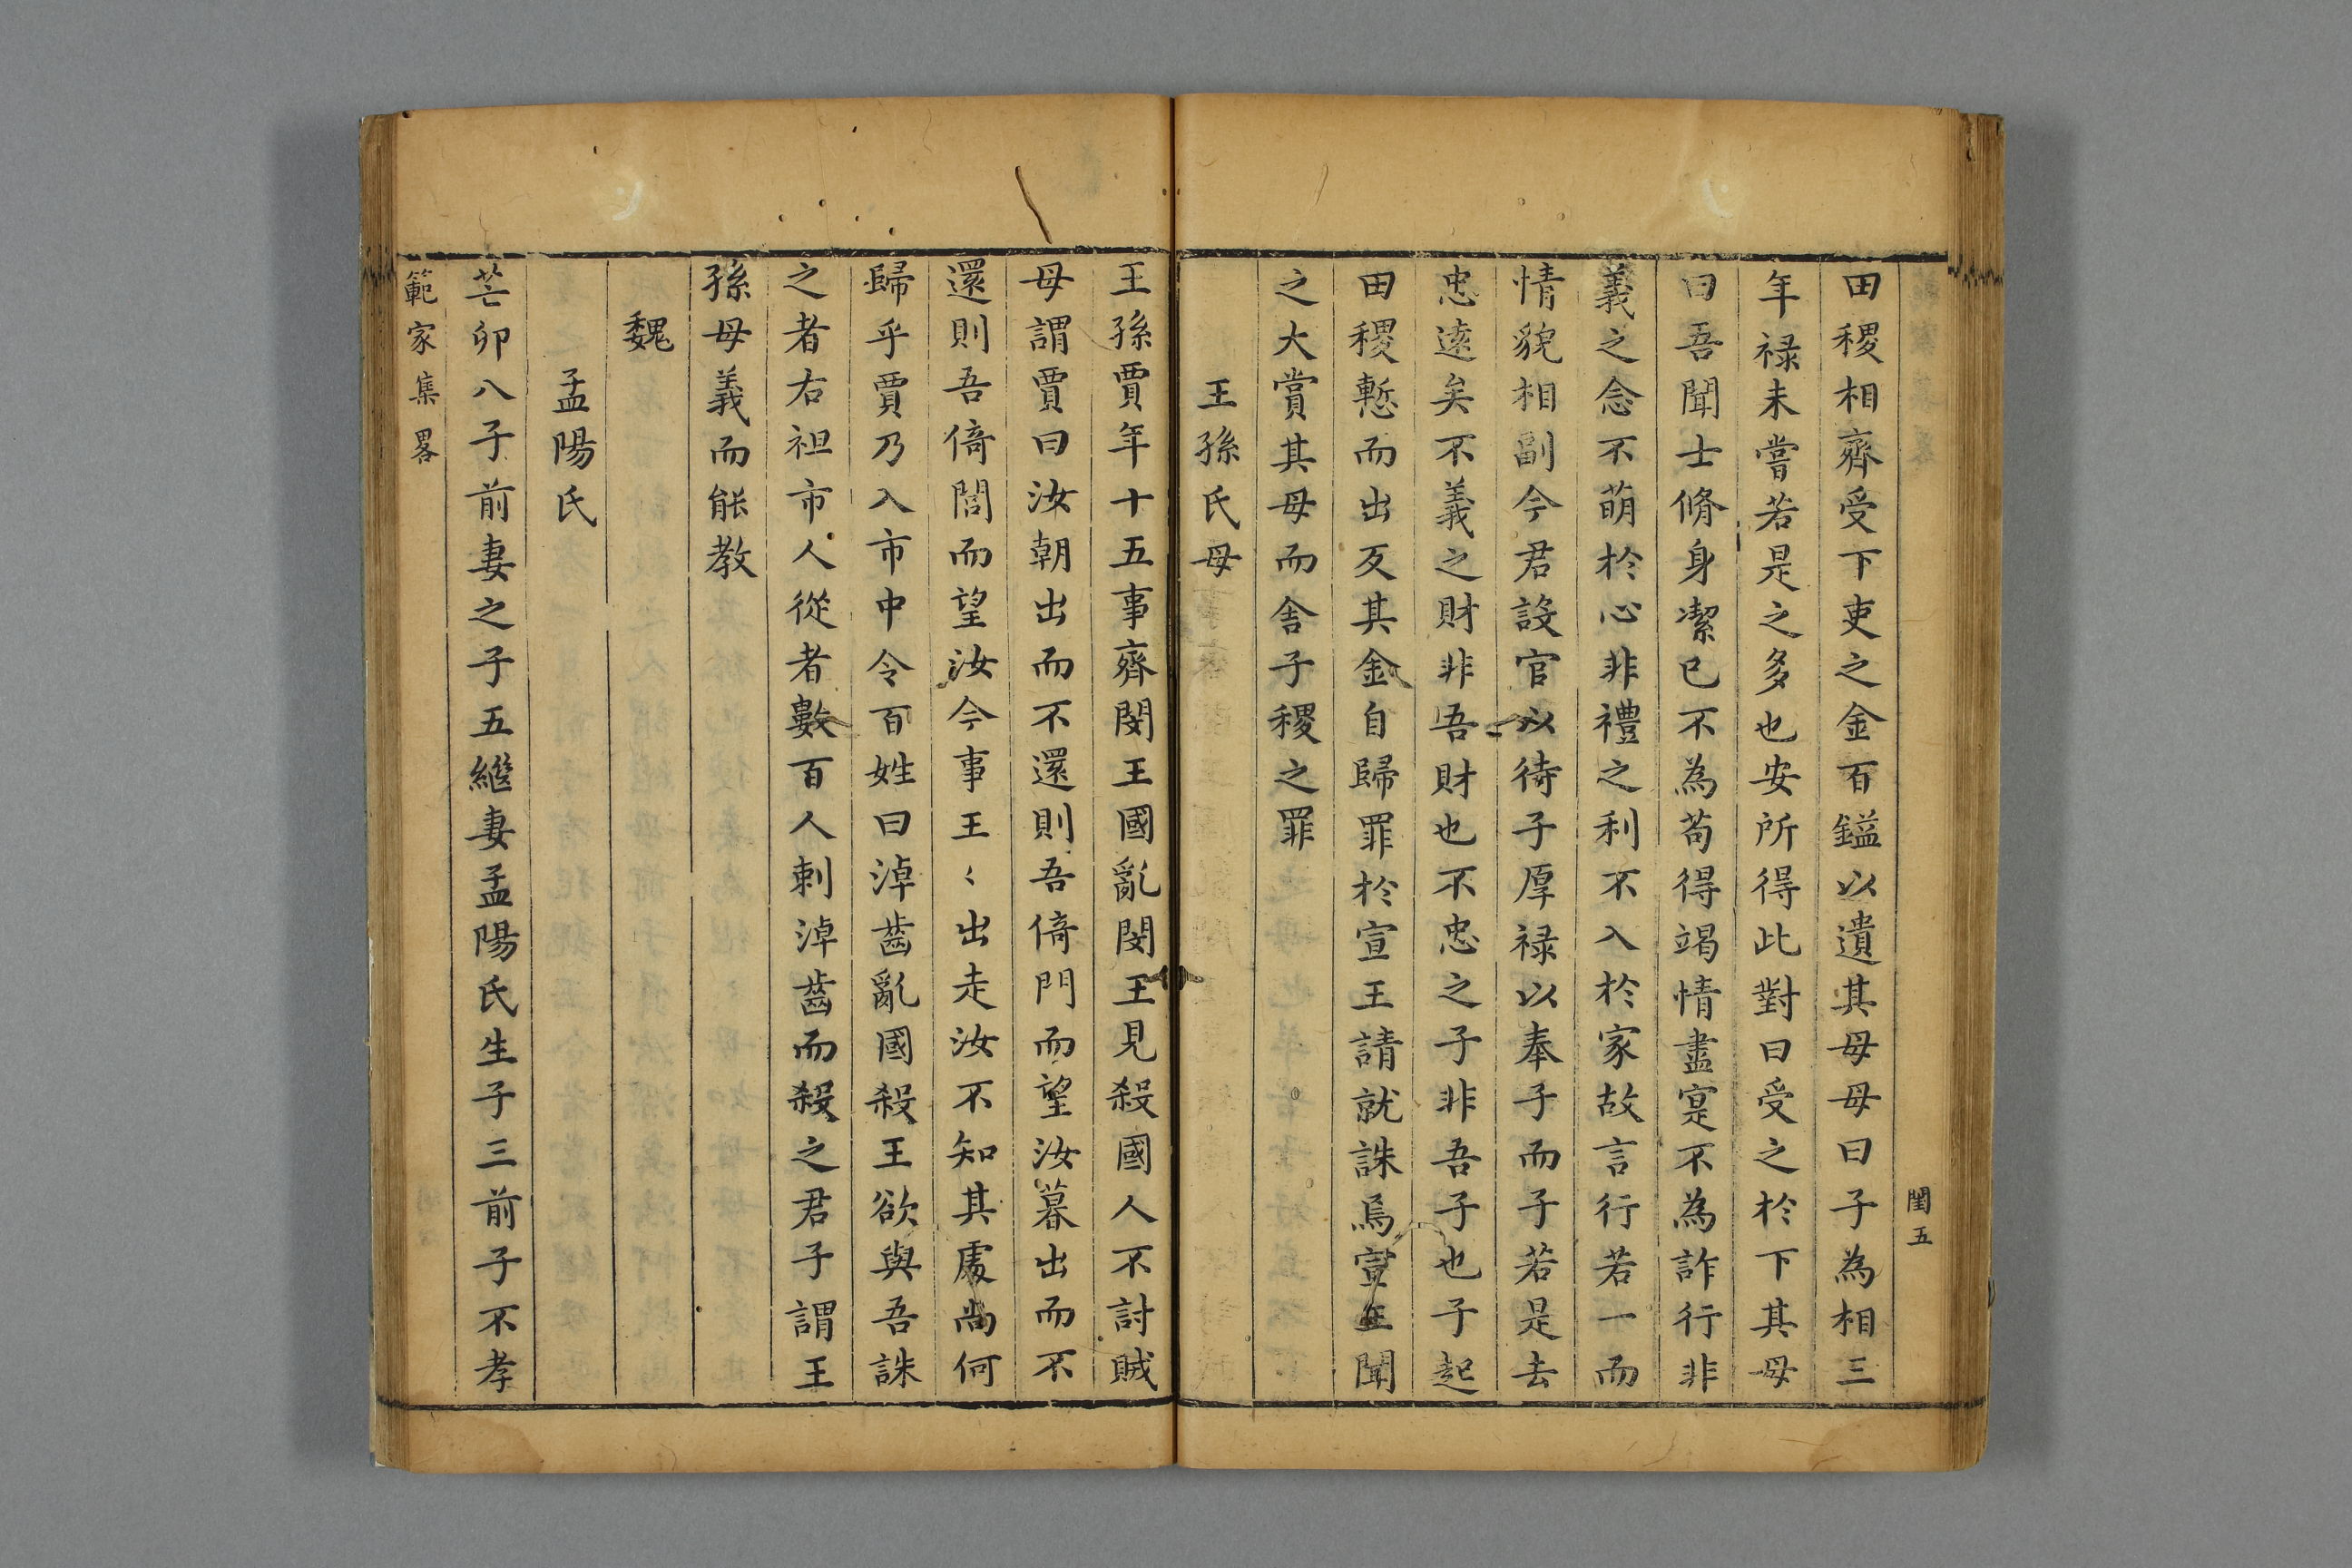 閨五
田稷相齊受下吏之金百鎰以遺其母母曰子為相三
年祿未嘗若是之多也安所得此對曰受之於下其母
曰吾聞士脩身潔己不為苟得竭情盡寔不為詐行非
義之念不萌於心非禮之利不入於家故言行若一而
情貌相副今君設官以待子厚祿以奉子而子若是去
忠逺矣不義之財非吾財也不忠之子非吾子也子起
田稷慙而出反其金自歸罪於宣王請就誅焉宣王聞
之大賞其母而舍子稷之罪
王孫氏母
王孫賈年十五事齊閔王國亂閔王見殺國人不討賊
母謂賈曰汝朝出而不還則吾倚門而望汝暮出而不
還則吾倚閭而望汝今事王〻出走汝不知其處尚何
歸乎賈乃入市中令百姓曰淖齒亂國殺王欲與吾誅
之者右袒市人從者數百人刺淖齒而殺之君子謂王
孫母義而能教
魏
孟陽氏
芒卯八子前妻之子五繼妻孟陽氏生子三前子不孝
範家集畧